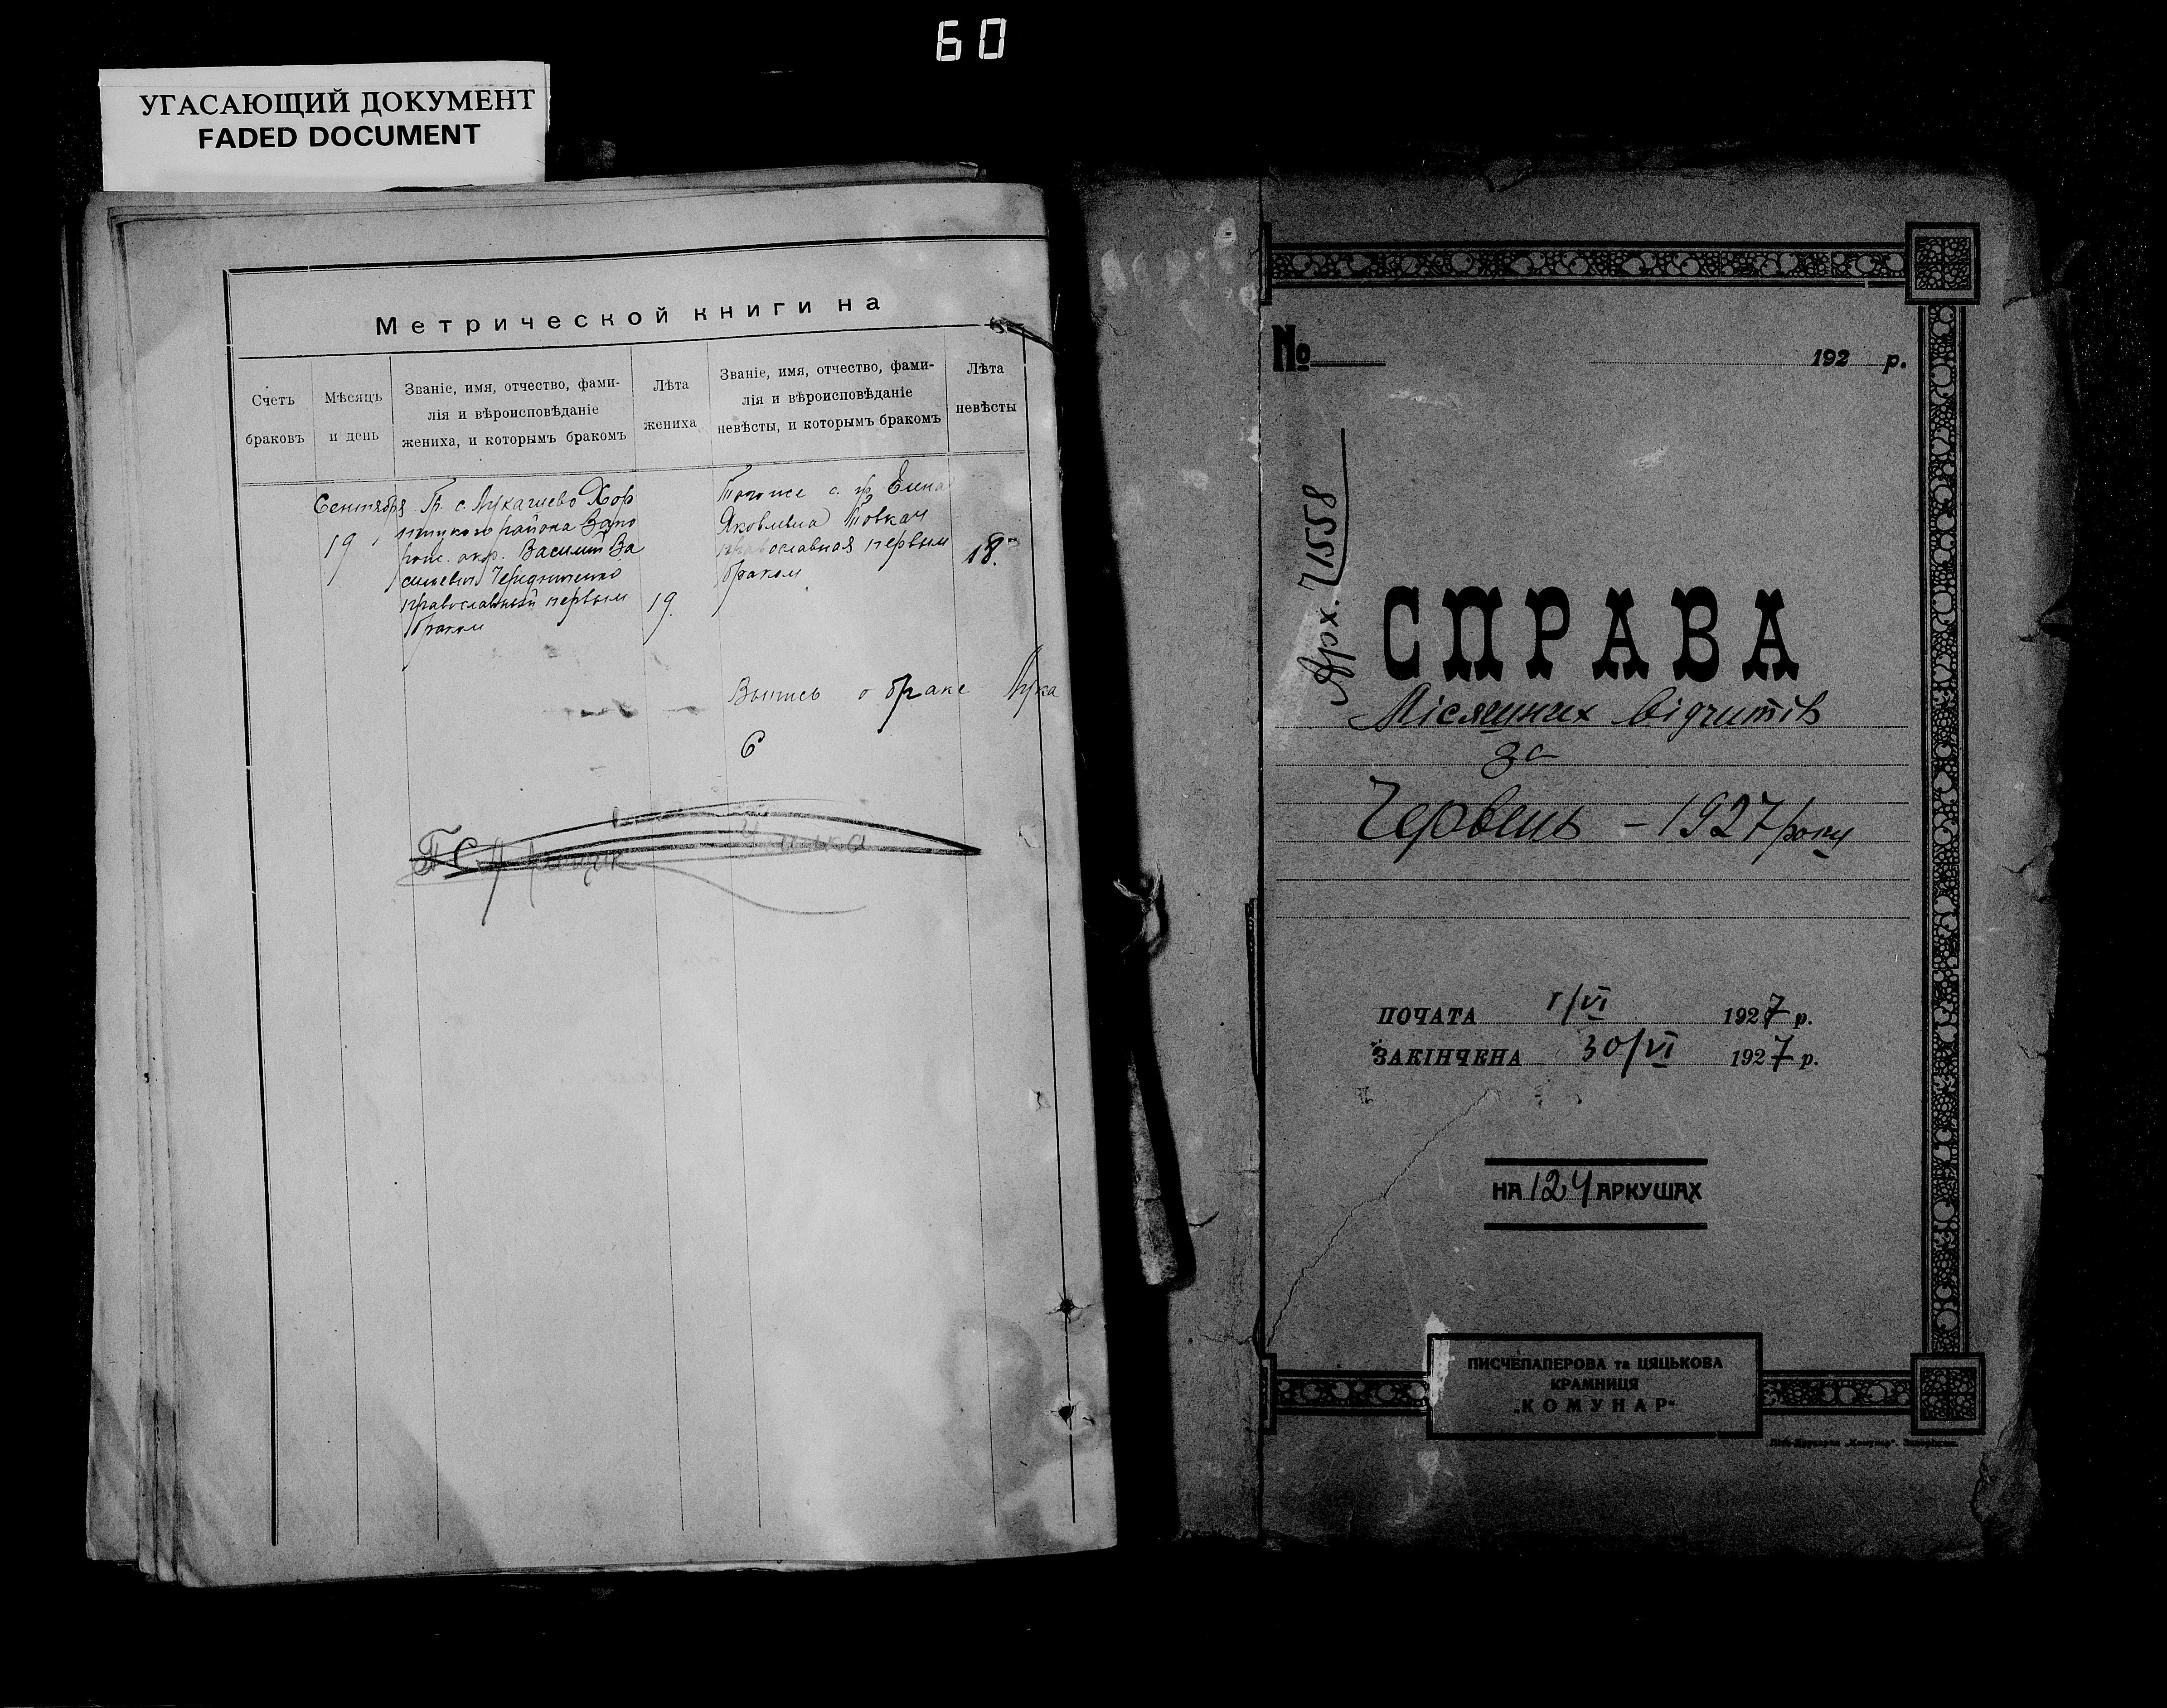 60
УГАСАЮЩИЙ ДОКУМЕНТ
FADED DOCUMENT
Метрической книги на
Счетъ
браковъ
Мѣсяцъ
и день
Званіе, имя, отчество, фами-
лія и вѣроисповѣданіе
жениха, и которымъ бракомъ
Лѣта
жениха
Званіе, имя, отчество, фами-
лія и вѣроисповѣданіе
невѣсты, и которымъ бракомъ
Лѣта
невѣсты
Сентября
19
Гр. с. Лукашево Хор
района Запо
рож. окр. Василий Ва
сильевич
православный первым
браком
19.
Тогоже с. гр. Елена
Яковлевна Товкач
православная первым
браком
18.
Выпись о браке Лука
6
№ 192 р.
Арх. 71558
СПРАВА
Місячних відчитів
за
Червень – 1927 року
ПОЧАТА 1/VI 1927 р.
ЗАКІНЧЕНА 30/VI 1927 р.
НА 124 АРКУШАХ
ПИСЧЕПАПЕРОВА та ЦЯЦЬКОВА
КРАМНИЦЯ
„КОМУНАР"